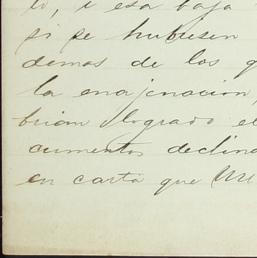 to, i esa baja
si se hubiesen
demas de los q
la enajenacion,
brian logrado el
aumentos declina
en carta que